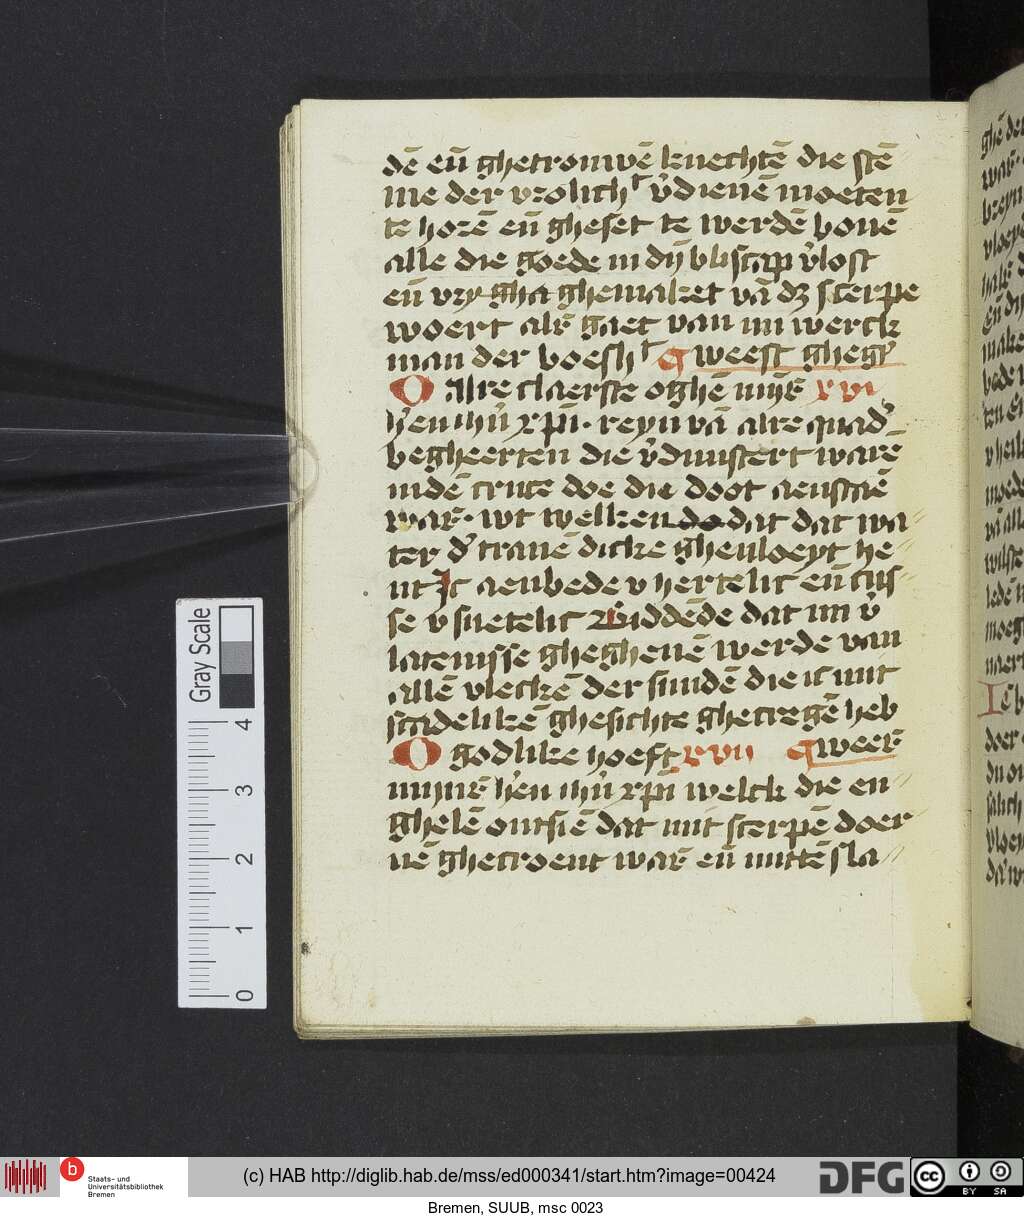 dē en̄ ghetrouwē knechtē die stē
me der vrolich̾ v̾dienē moeten
te horē en̄ gheset te werdē bouē
alle die goede in dy blistap v̾lost
en̄ vry ghemaket vā dʒ scerpe
woert als̄ gaet van mi werck
man der boesh̾ ¶ weest gheg̾
O alre claerste oghē mijs̄ xvi
h̾en ihū xp̄i. reyn vā alre quad̾
begheerten die v̾duustert warē
indē cruce doe die doot aenstaē
was̄. wt welken dat dat wa
ter d̾ tranē dicke gheuloeyt he
uit Ic aenbede v hertelic en̄ cus
se v suetelic Biddēde dat mi v̾
latenisse gheghenē werde van
allē vleckē der sundē die ic mit
scadelikē ghesichte ghecregē heb
O godlike hoeft xvii ¶ weer̄
mijns̄ h̾en ihū xp̄i welck die en
ghelē ontsiē dat mit scerpē doer
nē ghecroent was̄ en̄ mittē sla
Gray Scale
4
3
2
1
0
b
Staats- und
Universitätsbibliothek
Bremen
(c) HAB http://diglib.hab.de/mss/ed000341/start.htm?image=00424
DFG
cc
BY SA
Bremen, SUUB, msc 0023